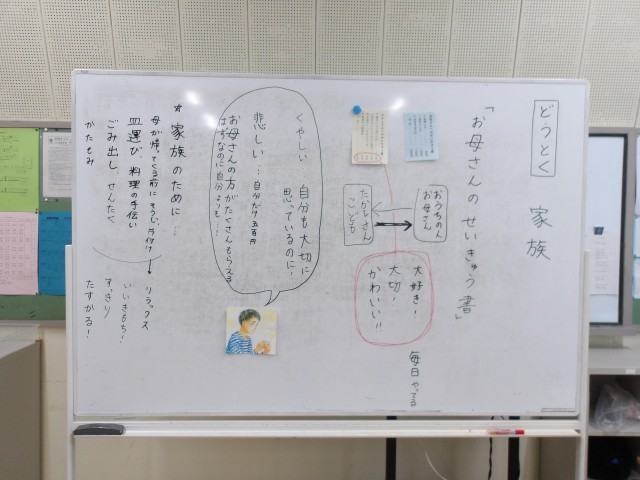 どうとく
家族
「お母さんのせいきゅう書」
おうちの人
お母さん
たかしさん
こども
大好き!
大切!
かわいい!!
毎日やってる
くやしい…自分も大切に
思っているのに!
悲しい…自分だけ五百円
お母さんの方がたくさんもらえる
はずなのに自分よりも…
★家族のために…
母が帰ってくる前にそうじ、片付け→リラックス
皿運び、料理の手伝い
ごみ出し、せんたく
かたもみ
いいきもち!
すっきり
たすかる!